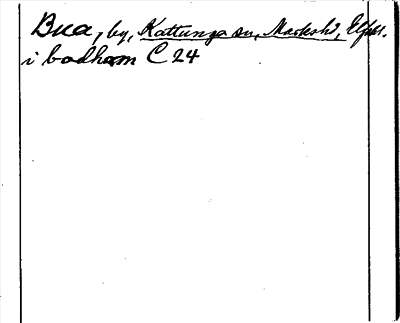 Bua, by, Kattunga sn, Marks hd, Elfsb l.
i bodham C 24